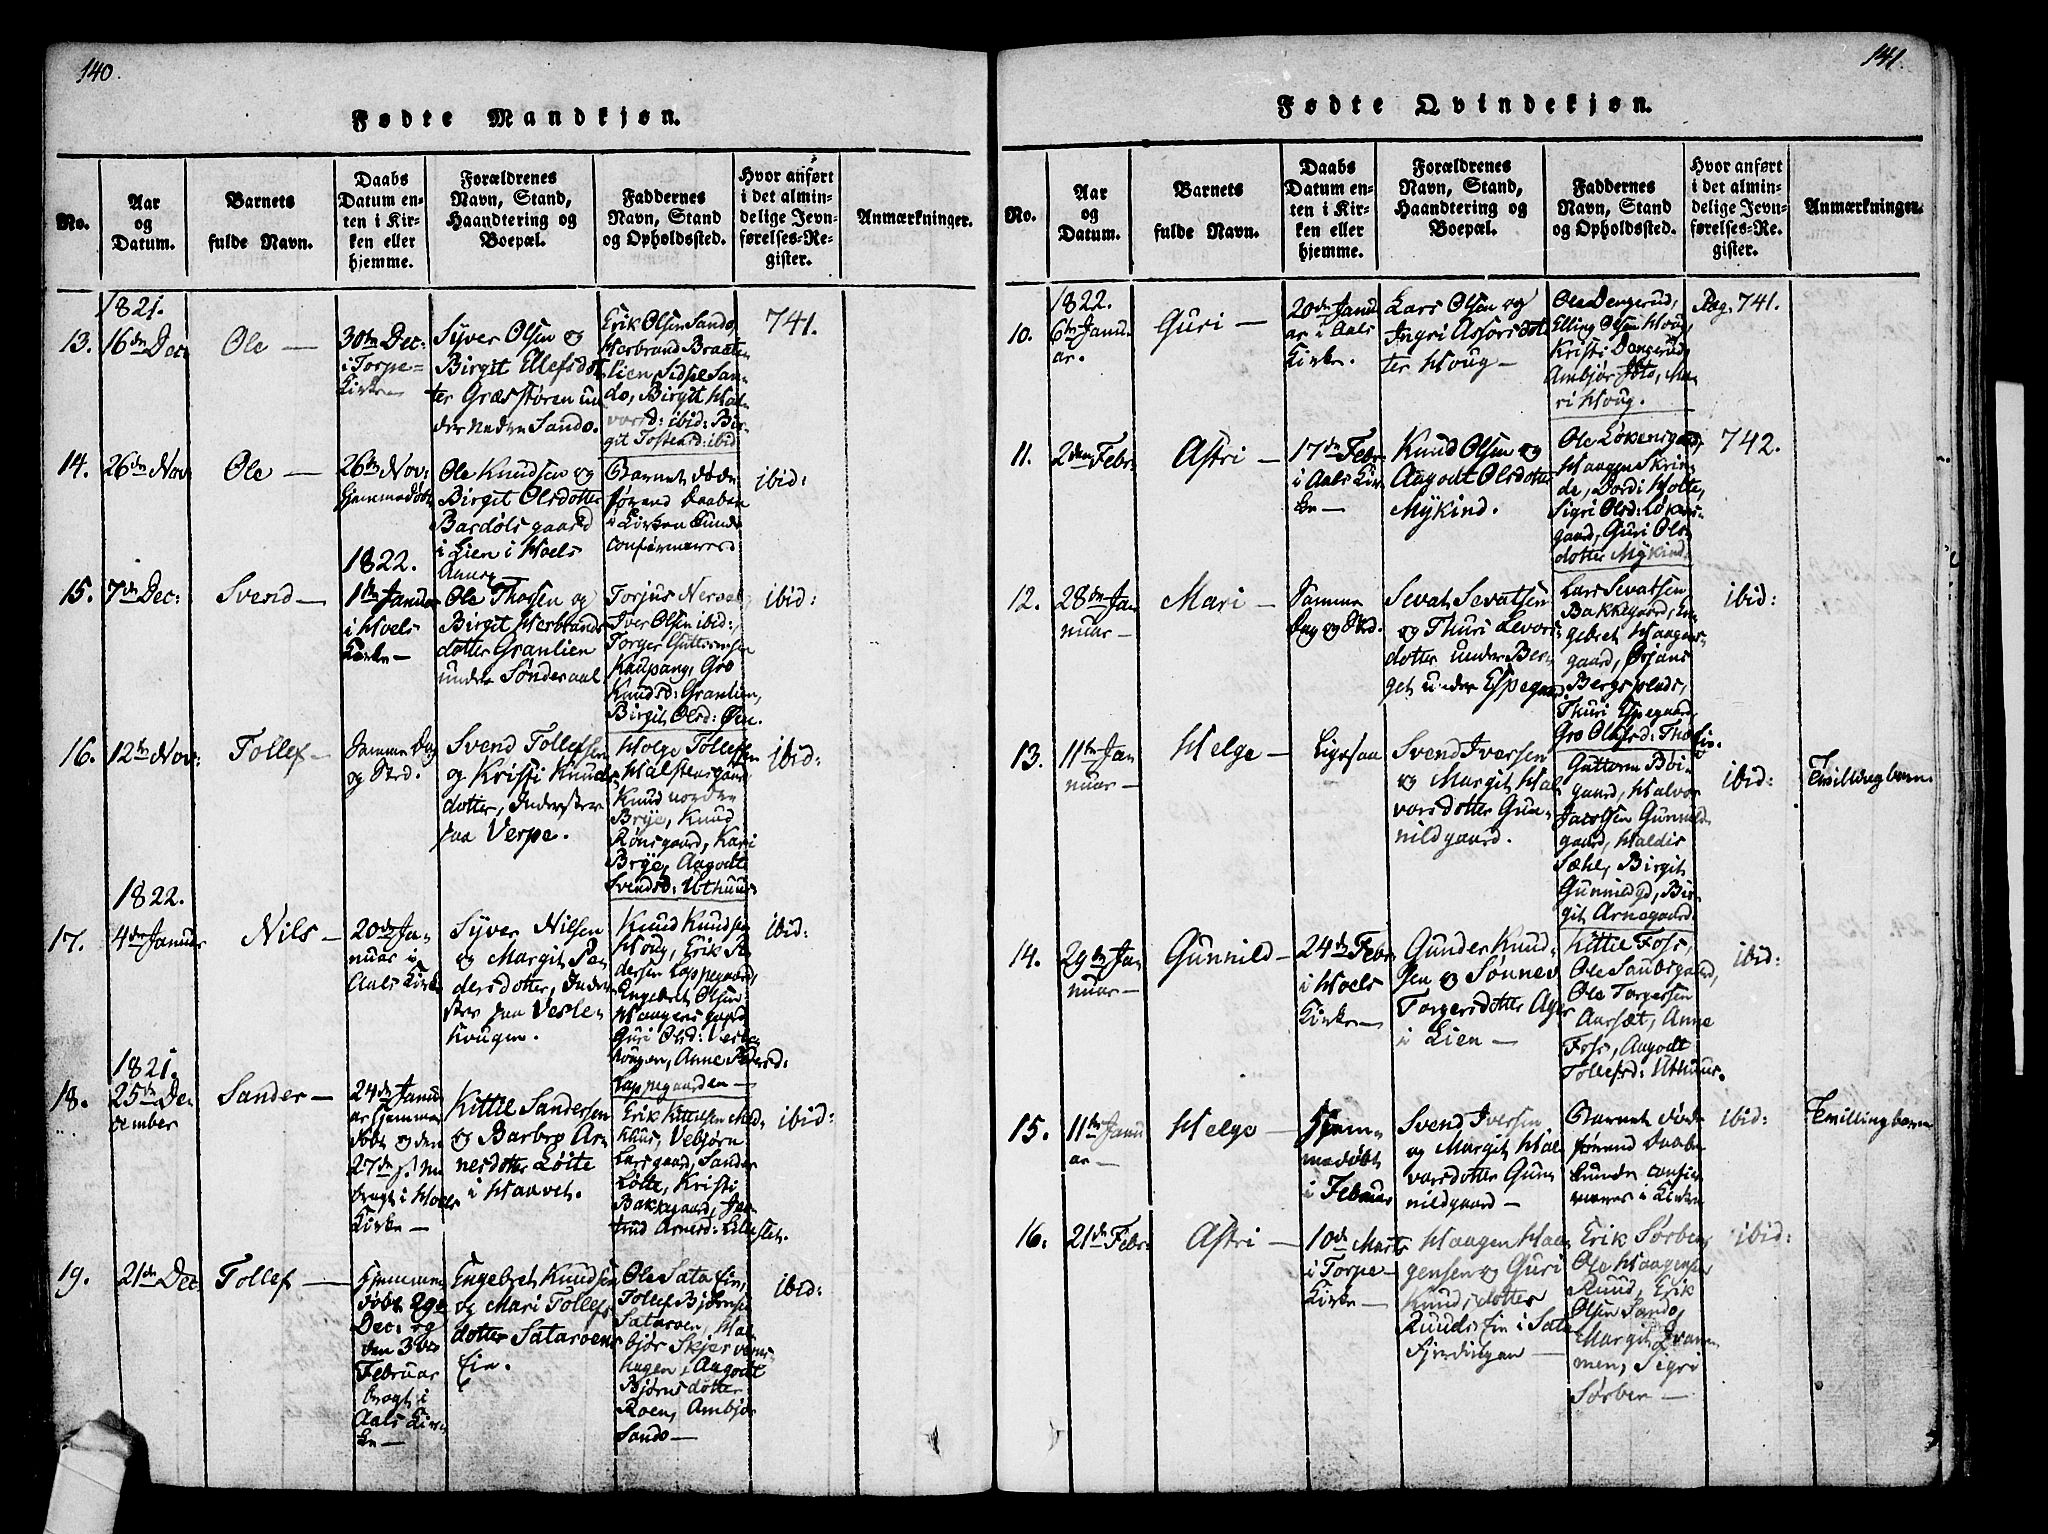 140.
Fødte Mandkjøn.
No.
Aar
og
Datum.
Barnets
fulde Navn.
Daabs
Datum en-
ten i Kir-
ken eller
hjemme.
Forældrenes
Navn, Stand,
Haandtering og
Boepæl.
Faddernes
Navn, Stand
og Opholdssted.
Hvor anført
i det almin-
delige Jevn-
førelses-Re-
gister.
Anmærkninger.
1821.
13.
16de Dec:
Ole
30te Dec:
i Torpe-
Kirke
Syver Olsen og
Birgit Ellefsdot-
ter Græsstøren un-
der Nedre Sando.
Erik Olsen Sando,
Herbrand Braaten
lien, Sidsel San-
do, Birgit Hal-
vorsd: ibid: Bir-
git Tostensd: ibid
741.
14.
26de Nov:
Ole
26de Nov:
hjemmedøbt
Ole Knudsen og
Birgit Olsdotter
Bardølsgaard
i Lien i Hoels
Annex
Barnet døde
førend Daaben
i Kirken kunde
confirmeres
ibid:
15.
7de Dec:
Svend
1822.
1te Januar
i Hoels
Kirke
Ole Thosen og
Birgit Herbrands
dotter Granlien
under Sønderaal
Torjus Nersat,
Iver Olsen ibid:
Torger Guttormsen
Kaupang, Gro
Knudsd: Granlien,
Birgit Olsd: Øen.
ibid:
16.
12te Nov:
Tollef
Samme Dag
og Sted.
Svend Tollefsen
og Kristi Knuds
dotter, Inderster
paa Verpe.
Helge Tollefsen
Halstensgaard
Knud nordre
Brye, Knud
Rønsgaard, Kari
Brye, Aagodt
Svendsd: Uthuus
ibid:
1822.
17.
4de Januar
Nils
20de Ja-
nuar i
Aals Kirke
Syver Nilsen
og Margit Pe-
dersdotter, Inder-
ster paa Vesle-
hougen.
Knud Knudsen
Houg, Erik Pe-
dersen Lappegaard,
Engebret Olsen
Haagensgaard
Guri Olsd: Vesle-
hougen, Anne Pedersd:
Lappegaarden
ibid:
1821.
18.
25de De-
cember
Sander
24de Janu-
ar hjemme
døbt og den
27de
bragt i Hoels
Kirke
Kittil Sandersen
og Barbro Ar-
nesdotter Løite
i Haavet.
Erik Kittilsen Med-
huus, Vebjørn
Larsgaard, Sander
Løtte, Kristi
Bakkegaard, Jar-
trud Arnesd: Lillestet.
ibid:
19.
21de Dec:
Tollef
hjemme
døbt 29de
Dec: og
den 3die
Februar
bragt i
Aals Kir-
ke
Engebret Knudsen
og Mari Tollefs
dotter Sataroens
Eie.
Ole Sata Eie,
Tollef Bjørnsen
Sataroen, Hal-
bjør Skjervens-
hagen, Aagodt
Bjørnsdotter
Roen, Ambjør
Sando
ibid:
141.
Fødte Qvindekjøn.
No.
Aar
og
Datum.
Barnets
fulde Navn.
Daabs
Datum en-
ten i Kir-
ken eller
hjemme.
Forældrenes
Navn, Stand,
Haandtering og
Boepæl.
Faddernes
Navn, Stand
og Opholdssted.
Hvor anført
i det almin-
delige Jevn-
førelses-Re-
gister.
Anmærkninger.
1822.
10.
6te Janu-
ar.
Guri
20de Janu-
ar i Aals
Kirke.
Lars Olsen og
Ingri Assorsdot-
ter Houg
Ole Dengerud,
Elling Olsen Houg,
Kristi Dengerud,
Ambjør Joto, Ma-
ri Houg.
Pag. 741.
11.
2den Febr:
Astri
17de Febr:
i Aals Kir-
ke
Knud Olsen og
Aagodt Olsdotter
Mykind.
Ole Løkensgaard,
Haagen Skrin-
de, Dordi Holte,
Sigri Olsd: Løkens-
gaard, Guri Ols-
dotter Mykind.
742.
12.
28de Ja-
nuar
Mari
Samme
Dag og Sted.
Sevat Sevatsen
og Thuri Levors-
dotter under Ber-
get under Espegaard.
Lars Sevatsen
Bakkegaard, En-
gebret Haagens-
gaard, Ørjans
Bergsplads,
Thuri Espegaard
Gro Olsd: Tholie.
ibid:
13.
11te Ja-
nuar
Helge
Ligesaa
Svend Iversen
og Margit Hal-
vorsdotter Gun-
nildgaard.
Guttorm Bøi-
gaard, Halvor
Jacobsen Gunnild
gaard, Haldis
Sæhle, Birgit
Gunnildgd, Bir-
git Arnegaard
ibid:
Tvillingbarn.
14.
29de Ja-
nuar
Gunnild
24de Febr:
i Hoels
Kirke
Gunder Knud-
sen og Sønnev
Torgersdotter Ager
i Lien
Kittil Foss,
Ole Saubsgaard,
Ole Torgersen
Aarsæt, Anne
Foss, Aagodt
Tollefsd: Uthuus.
ibid:
15.
11te Janu
ar
Helge
Hjem-
medøbt
i Februar
Svend Iversen
og Margit Hal-
vorsdotter Gun-
nildgaard
Barnet døde
førend Daaben
kunde confir-
meres i Kirke
ibid:
Tvillingbarn
16.
21de Febr:
Astri
10de Marts
i Torpe-
Kirke
Haagen Haa-
gensen og Guri
Knudsdotter
Ruuds Eie i Sata
Fjerdingen
Erik Sørben
Ole Haagensen
Ruud, Erik
Olsen Sando,
Margit
men, Sigri
Sørben
ibid: